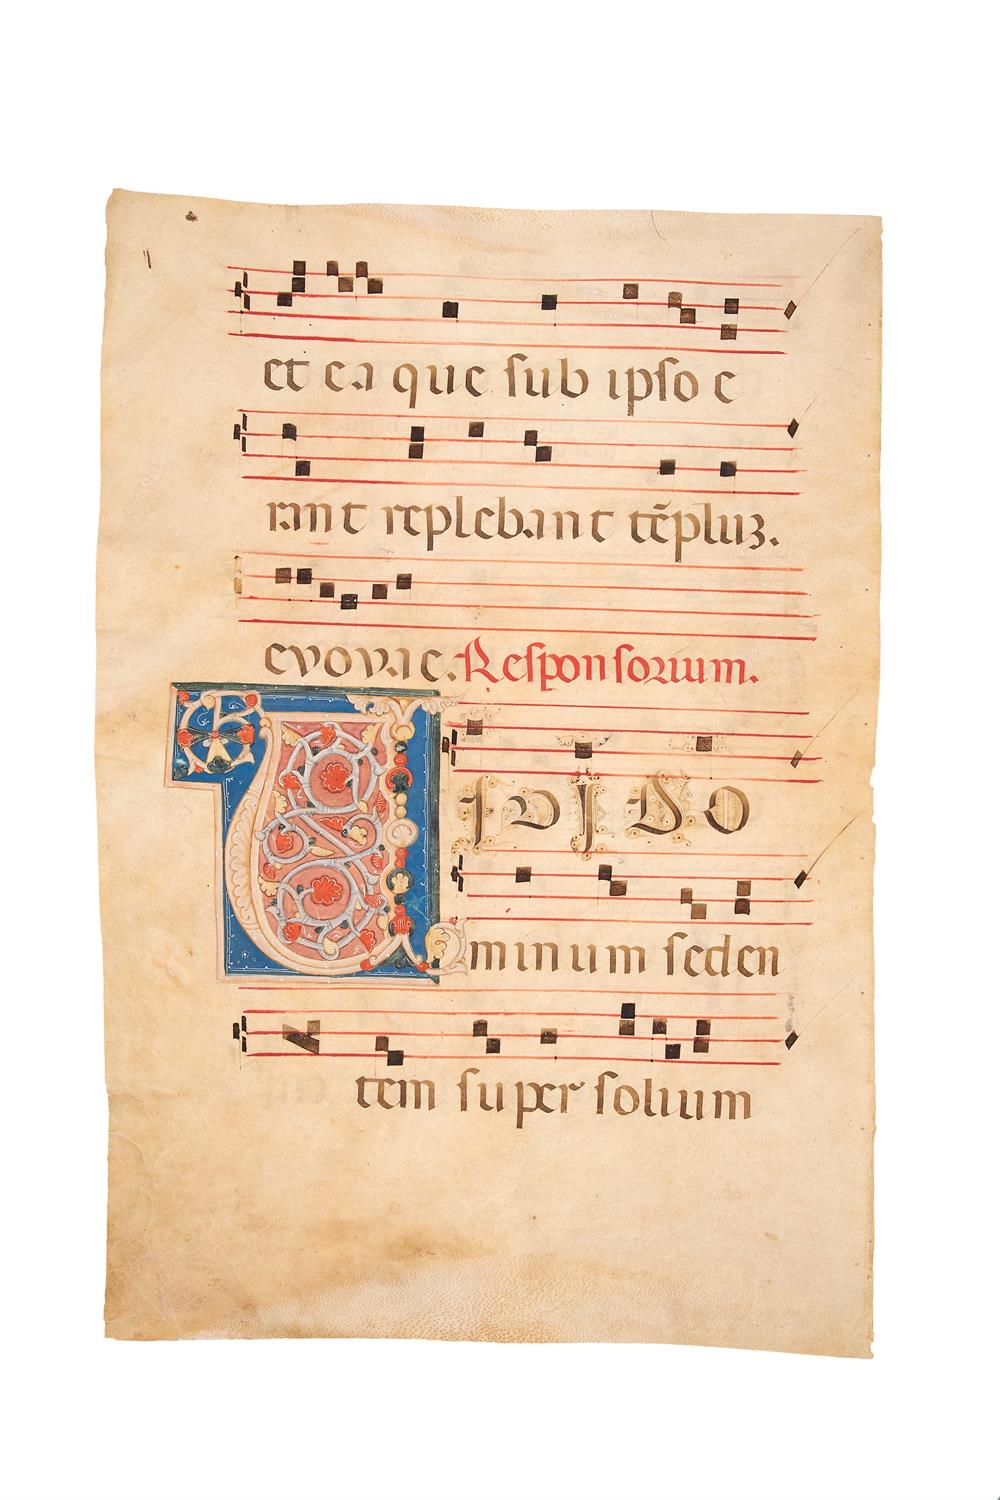 et ea que sub ipso e
rant replebant tẽpluꝫ.
evovae. Responsorium.
VIDI DO
minum seden
tem super solium